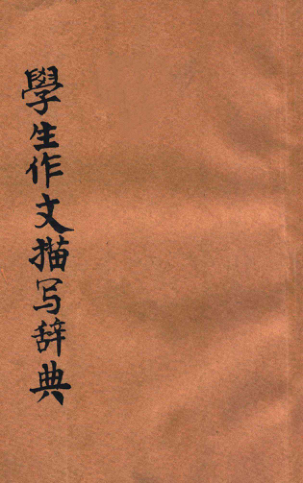 學生作文描写辞典